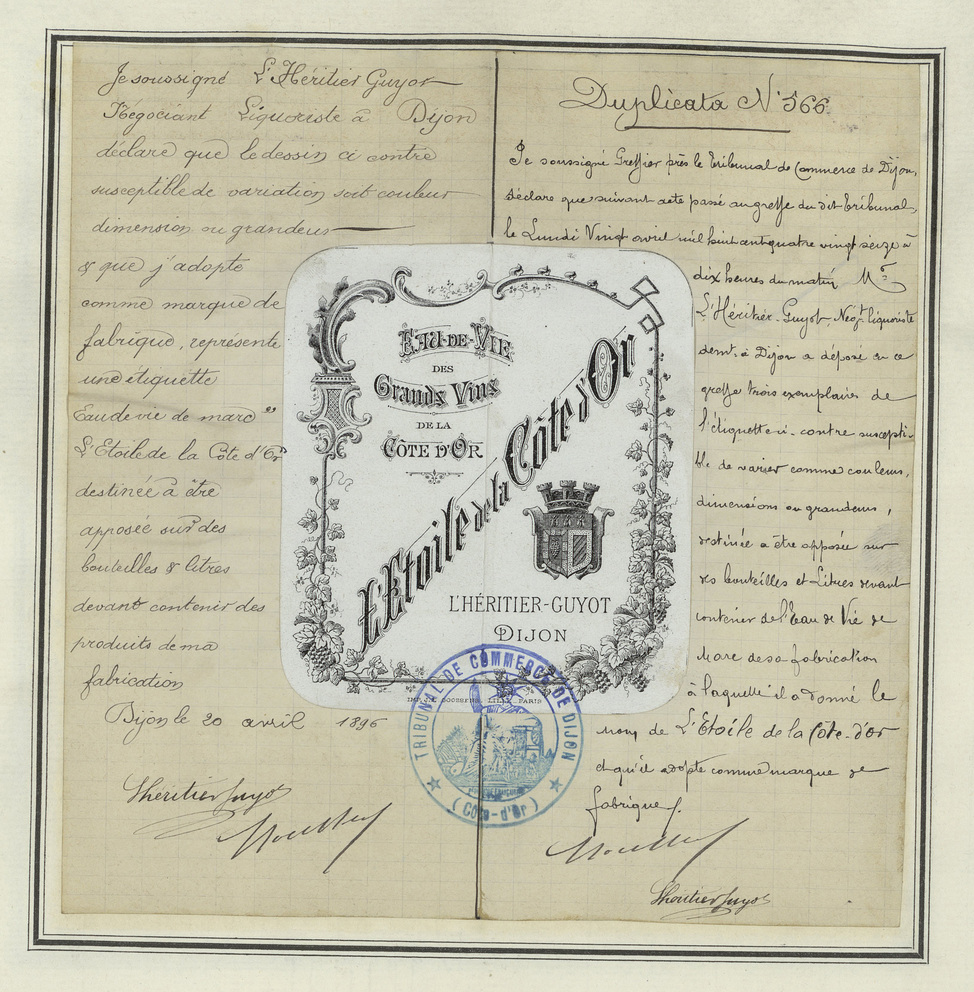 Je soussigné L'Héritier Guyot
Négociant Liquoriste à Dijon
déclare que le dessin ci contre
susceptible de variation soit couleur
dimension ou grandeur
& que j'adopte
comme marque de
fabrique, représente
une étiquette
Eau de vie de marc
L'Etoile de la Côte d'Or
destinée à être
apposée sur des
bouteilles & litres
devant contenir des
produits de ma
fabrication
Dijon le 20 avril 1896
Lhéritier Guyot
EAU-DE-VIE
DES
Grands Vins
DE LA
CÔTE D'OR
L'Etoile de la Côte d'Or
L'HÉRITIER-GUYOT
DIJON
LILLE-PARIS
TRIBUNAL DE COMMERCE DE DIJON
(Côte-d'Or)
Duplicata N° 566
Je soussigné Greffier près le Tribunal de Commerce de Dijon,
déclare que suivant acte passé au greffe du dit Tribunal,
le Lundi Vingt avril mil huit cent quatre vingt seize à
dix heures du matin Mr
L'Héritier-Guyot, Négt liquoriste
demt à Dijon a déposé en ce
greffe trois exemplaires de
l'étiquette ci-contre suscepti-
ble de varier comme couleurs,
dimensions ou grandeurs,
destinée à être apposée sur
des bouteilles et Litres devant
contenir de l'Eau de Vie de
Marc de sa fabrication
à laquelle il a donné le
nom de L'Etoile de la Côte-d'or
et qu'il adopte comme marque de
fabrique.
Lhéritier Guyot